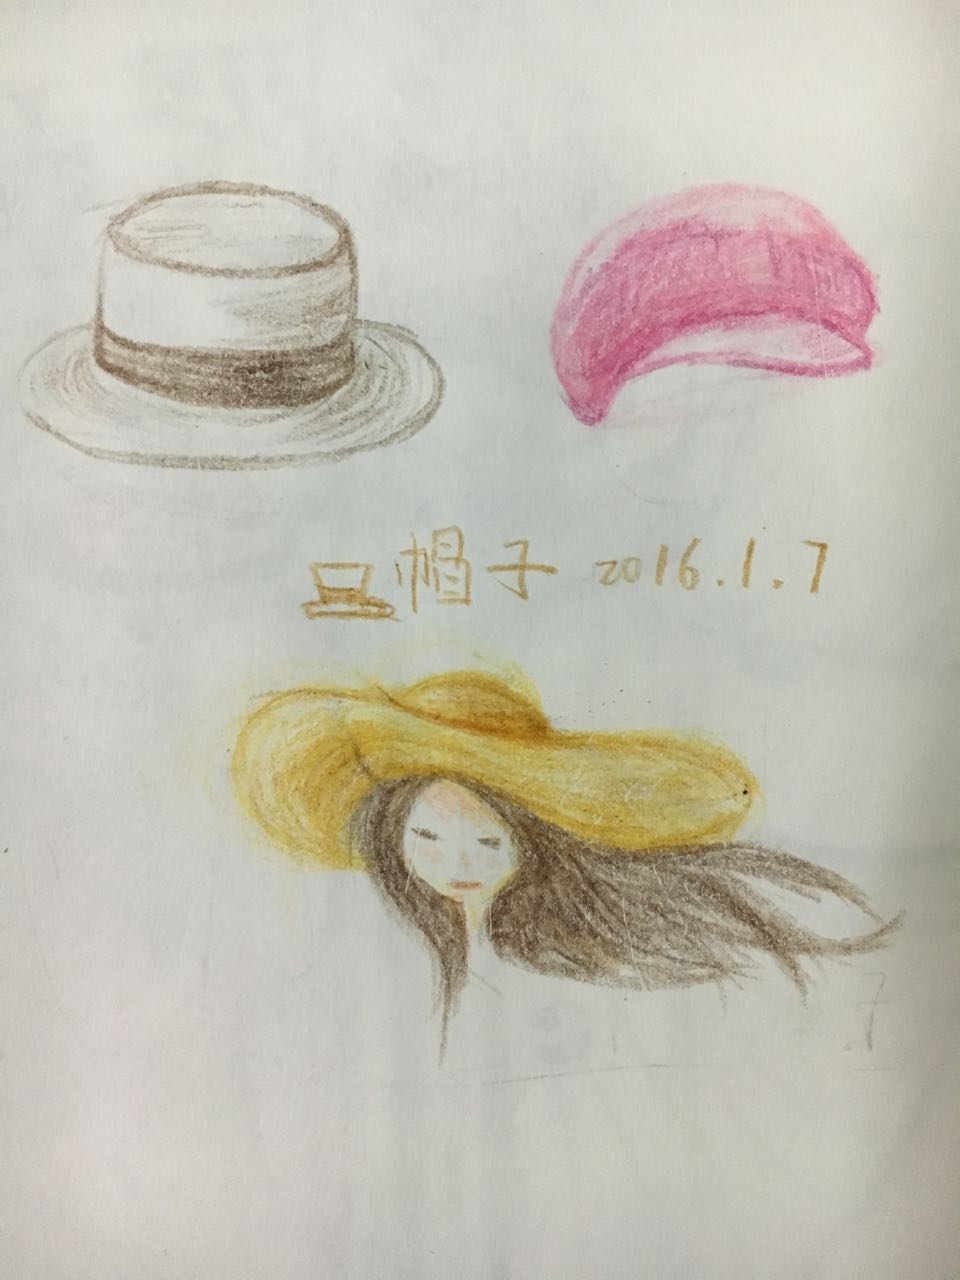 帽子 2016.1.7
.7